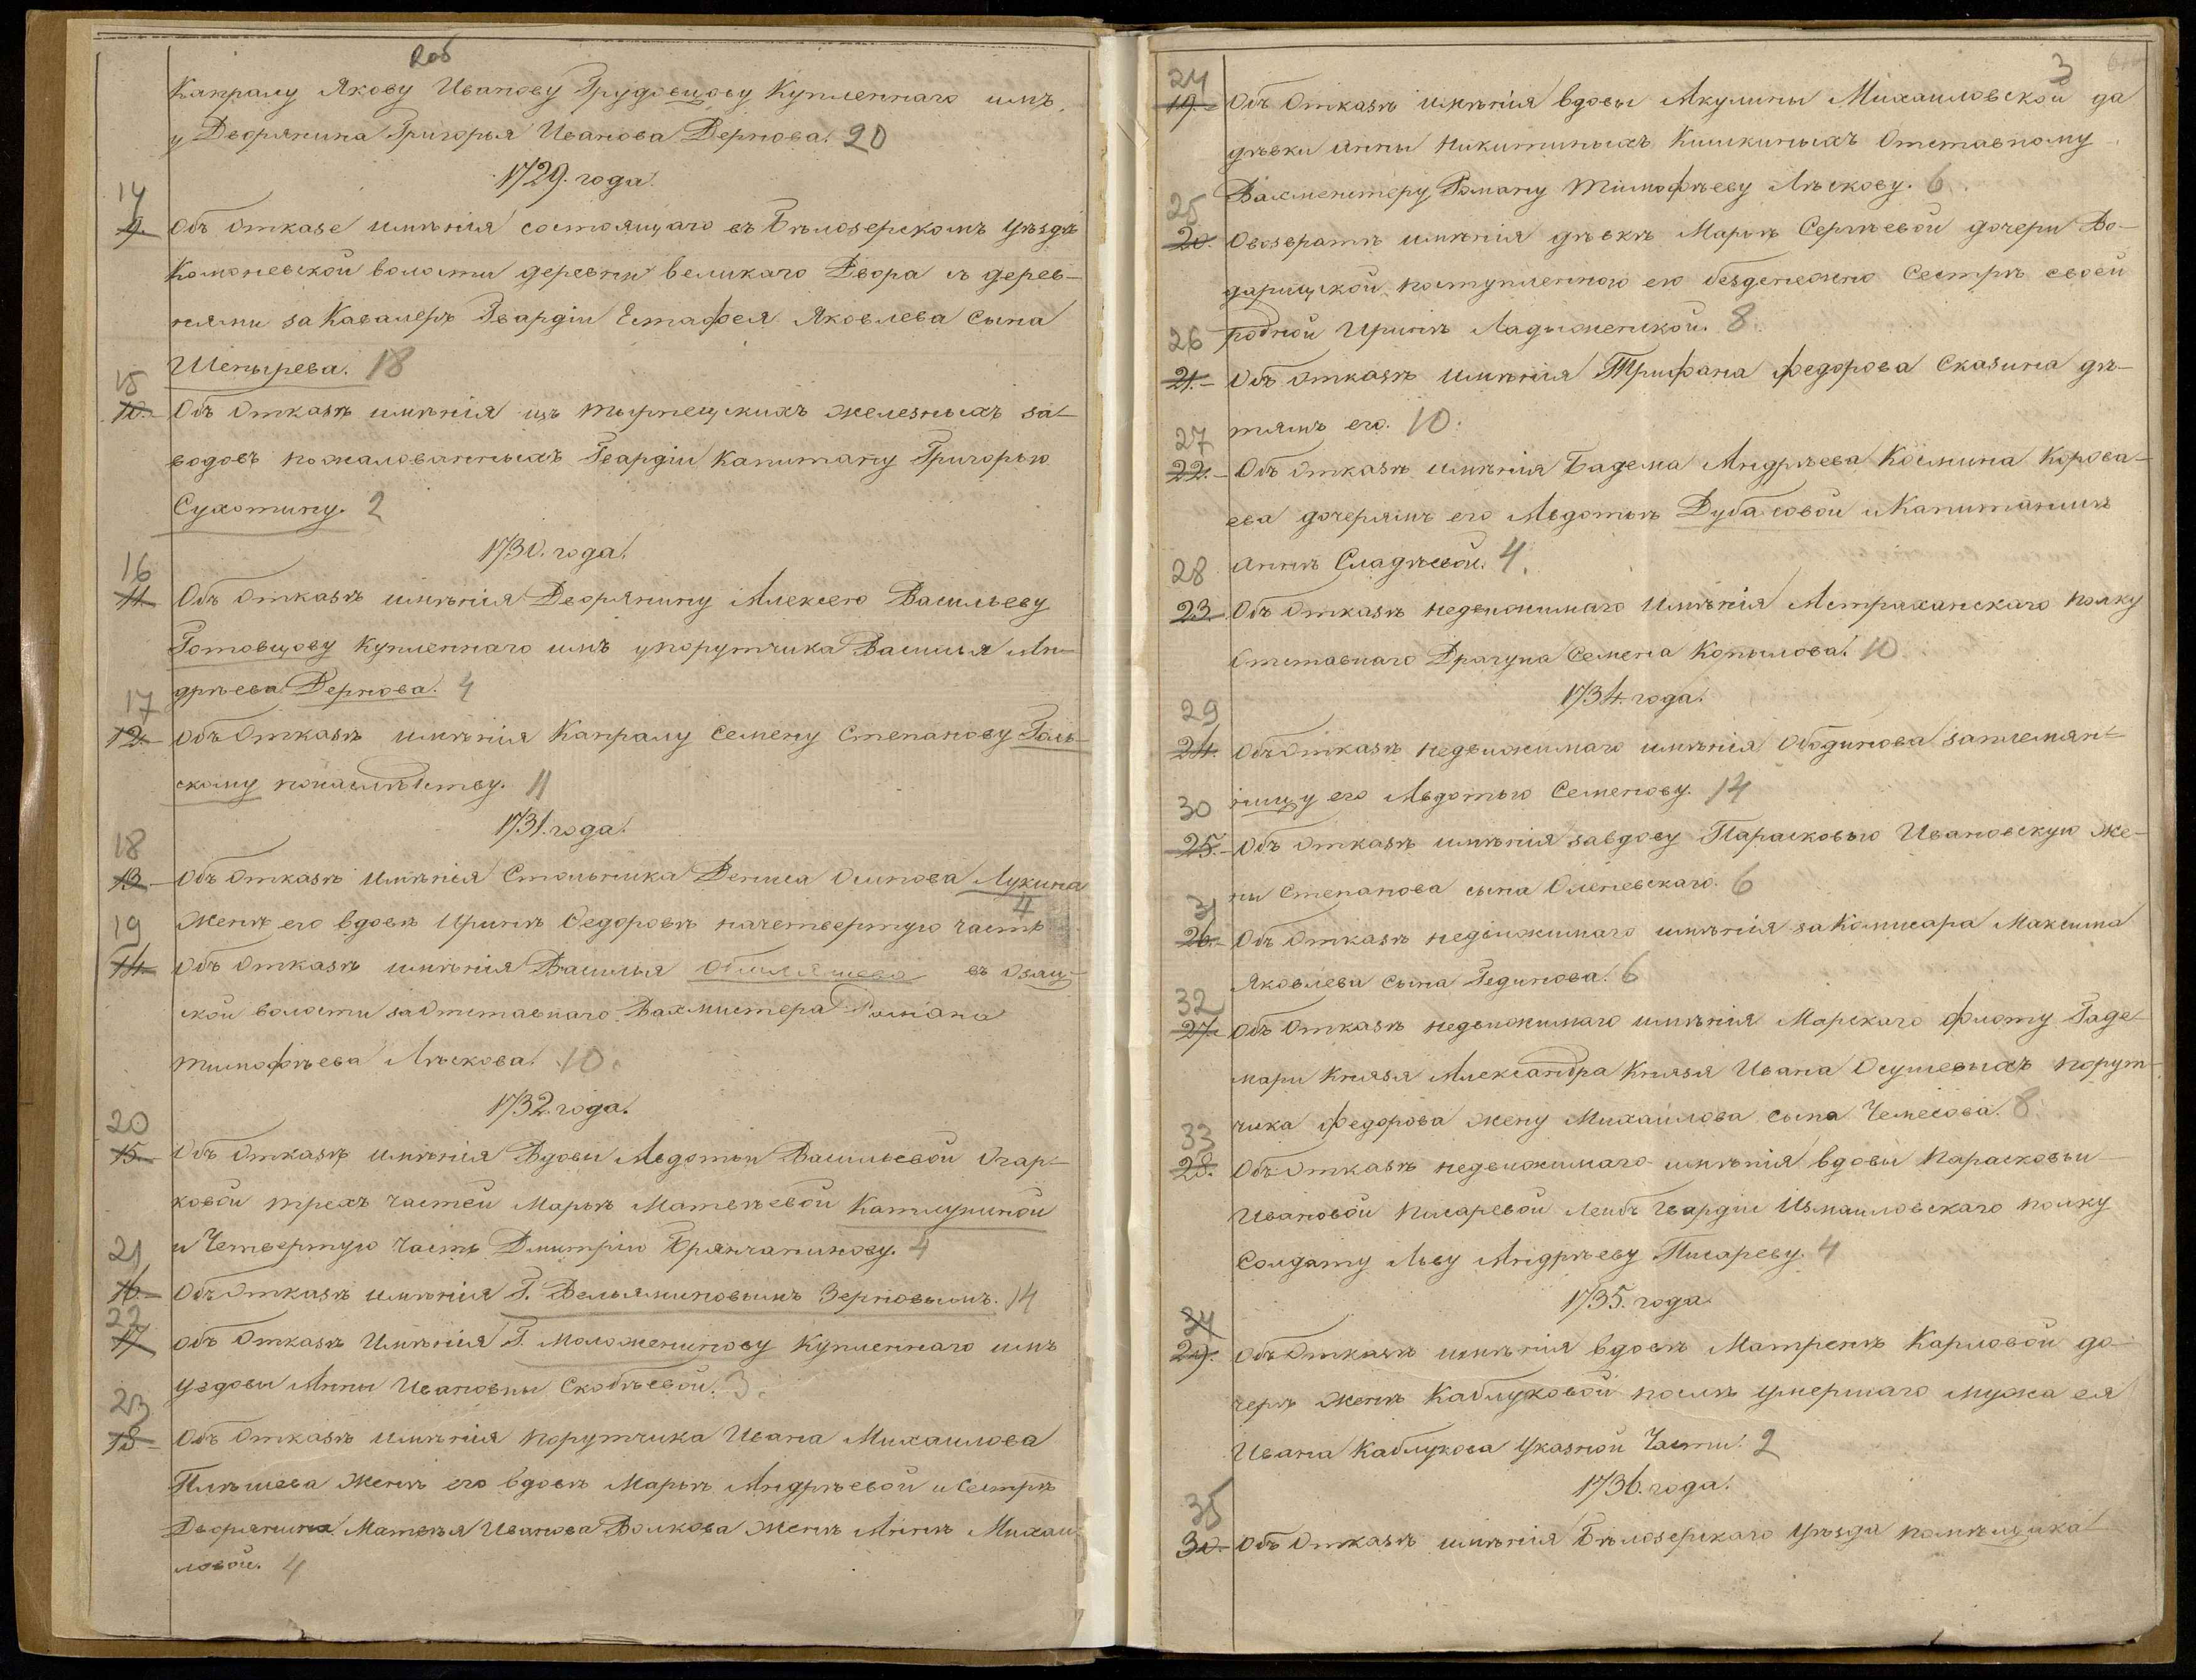 2об
Капралу Якову Иванову Трудовщову Купленнаго имъ
у Дворянина Григорья Иванова Дернова. 20
1729. года.
14
9. Объ отказе имѣнія состоящаго въ Бѣлозерскомъ Уѣздѣ
Комоневской волости деревни великаго Двора съ дерев-
нями за Кавалеръ Гвардіи Естафея Яковлева Сына
Шепырева. 18
15
10. Объ отказѣ имѣнія изъ тырпецкихъ железныхъ за-
водовъ пожалованныхъ Гвардіи Капитану Григорью
Сухотину. 2
1730. года.
16
11. Объ отказѣ имѣнія Дворянину Алексею Васильеву
Готовцову купленнаго имъ упорутчика Василья Ан-
дрѣева Дернова. 4
17
12. Объ отказѣ имѣнія Капралу Семену Степанову Голь-
скому понаслѣдству. 11
1731. года.
18
13. Объ отказѣ имѣнія Стольника Дениса Осипова Лукина
Женѣ его вдовѣ Иринѣ Федоровѣ начетвертую часть 4
19
14. Объ отказѣ имѣнія Василья въ Озац-
кой волости заотставнаго Вахмистера Романа
тимофѣева Лѣскова. 10.
1732. года.
20
15. Объ отказѣ имѣнія Вдовы Авдотьи Васильевой Огар-
ковой трехъ частей Марьѣ Матвѣевой Катлуниной
и Четвертую Часть Дмитрію Брянчанинову. 4
21
16. Объ отказѣ имѣнія Г. Вельяминовымъ Зерновымъ. 14
22
17 Объ отказѣ Имѣнія Г. Моложенинову Купленнаго имъ
увдовы Анны Ивановны Скобѣевой. 3.
23
18 Объ отказѣ имѣнія порутчика Ивана Михаилова
Плѣшева Женѣ его вдовѣ Марьѣ Андрѣевой и Сестрѣ
Дворянина Матвѣя Иванова Волкова женѣ Аннѣ Михаи-
ловой. 4
3
24
19. Объ Отказѣ имѣнія вдовы Акулины Михаиловской да
дѣвки Анны Никитиныхъ Кишкиныхъ Отставному
Вахменстеру Роману Тимофѣеву Лѣскову. 6.
25
20. Овозвратѣ имѣнія дѣвкѣ Марѣѣ Сергѣевой дочери Во-
дарицкой поступленного ею безденежно Сестрѣ своей
родной Иринѣ Ладыженской. 8.
26
21. Объ отказѣ имѣнія Трифана Федорова Сказина дѣ-
тямъ его. 10.
27
22. Объ отказѣ имѣнія Бадема Андрѣева Космина Корова-
ева дочерямъ его Авдотьѣ Дубасовой и Капитаншѣ
Аннѣ Сладѣевой. 4.
28
23. Объ отказѣ недвижимаго имѣнія Астраханскаго полку
отставнаго Драгуна Семена Копылова. 10
1734. года.
29
24. Объ отказѣ недвижимаго имѣнія Ободинова заплемян-
ницу его Авдотью Семенову. 14
30
25. Объ отказѣ имѣнія завдову Парасковью Ивановскую же-
ни Степанова сына Оленевскаго. 6
31
26. Объ отказѣ недвижимаго имѣнія заКомисара Максима
Яковлева сына Гединова. 6
32
27. Объ отказѣ недвижимаго имѣнія Марскаго флоту Гаде-
мари Князя Александра Князя Ивана порут-
чика Федорова жену Михаилова сына Чемесова. 8
33
28. Объ отказѣ недвижимаго имѣнія вдовы Парасковьи
Ивановой Писаревой Лейбъ Гвардіи Измаиловскаго полку
Солдату Льву Андрѣеву Писареву. 4
1735. года.
34
29. Объ отказѣ имѣнія вдовѣ Матренѣ Карповой до-
черѣ женѣ Каблуковой послѣ умершаго мужа ея
Ивана Каблукова Указной Части. 2
1736. года.
35
30. Объ отказѣ имѣнія Бѣлозерскаго Уѣзда помѣщика